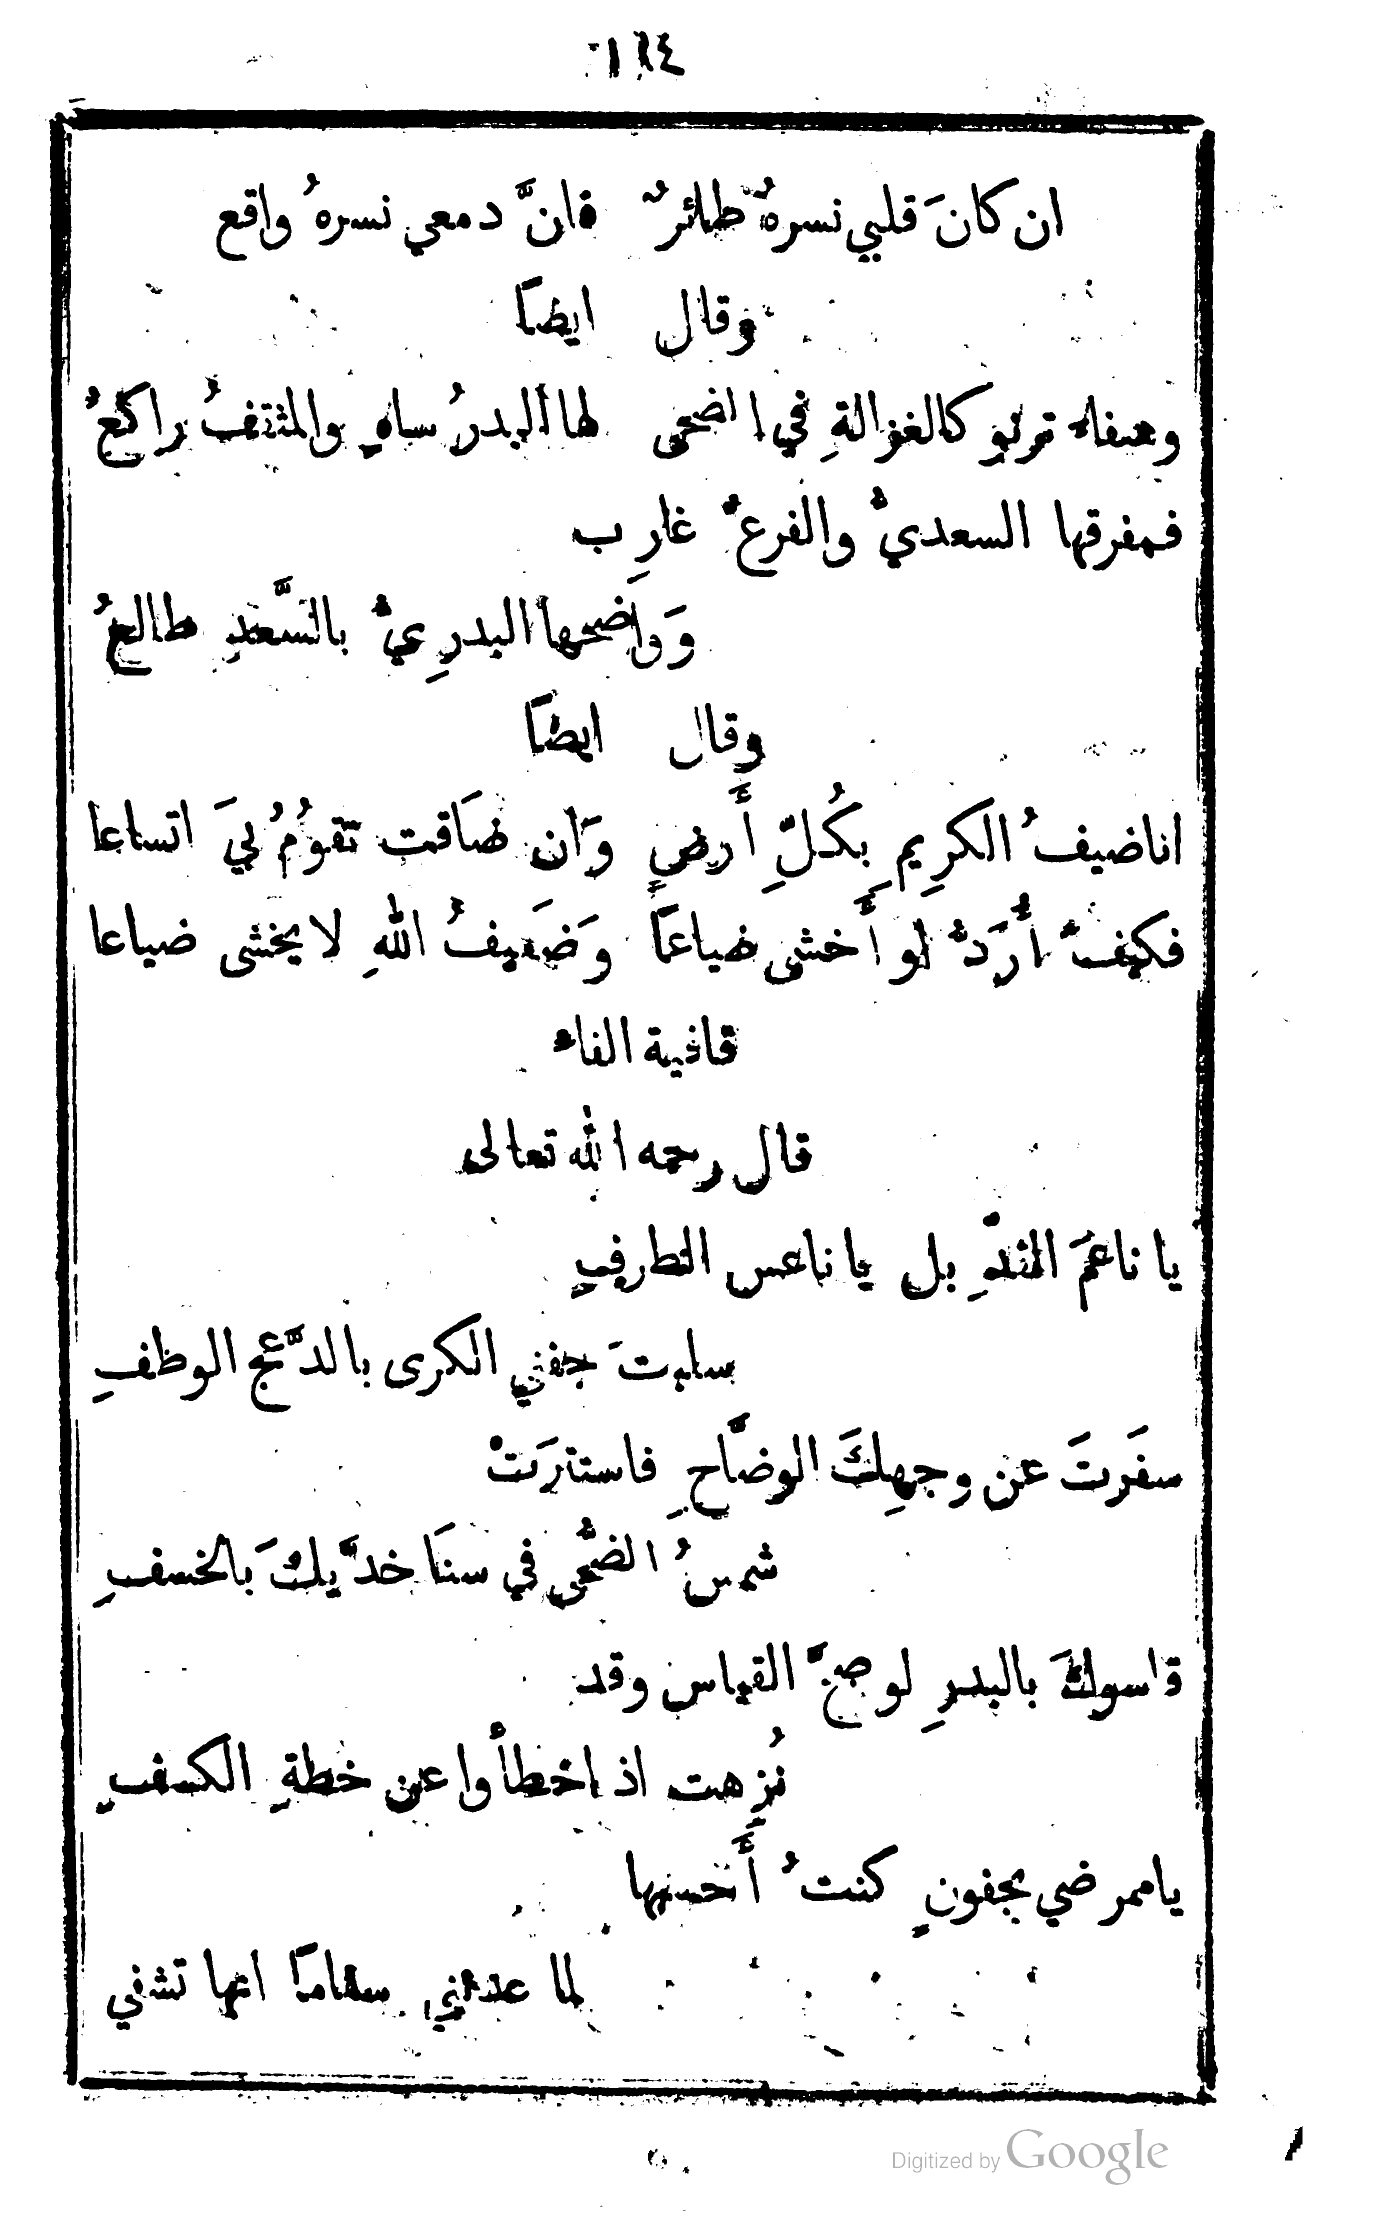 ١١٤
ان كانَ قلبي نسرهُ طائرٌ فانَّ دمعي نسرهُ واقع
وقال ايضاً
وهيفاء ترنو كالغزالةِ في الضحى لها البدرُ ساهٍ والمثقفُ راكعُ
فمفرقها السعديُّ والفرعُ غارِب
وَواضحها البدرِيُّ بالسَّعدِ طالعُ
وقال ايضاً
انا ضيفُ الكرِيمِ بِكُلِّ أَرضٍ وَان ضَاقت تقوُمُ بيَ اتساعا
فكيفَ أُرَدُّ لو أَخشى ضياعاً وَضَيفُ اللهِ لا يخشى ضياعا
قافية الفاء
قال رحمه الله تعالى
يا ناعمَ القدِّ بل يا ناعس الطرفِ
سلبتَ جفني الكرى بالدَّعج الوظفِ
سفَرتَ عن وجهِكَ الوضَّاحِ فاستترَتْ
شمسُ الضُّحى في سنَا خدَّيكَ بالخسفِ
قاسوكَ بالبدرِ لو صحَّ القياس وقد
نُزِهت اذ اخطأوا عن خطةِ الكسفِ
يا ممرضي بجفونٍ كنتُ أَحسبها
لما عدمني سقاماً انها تشفي
Digitized by Google